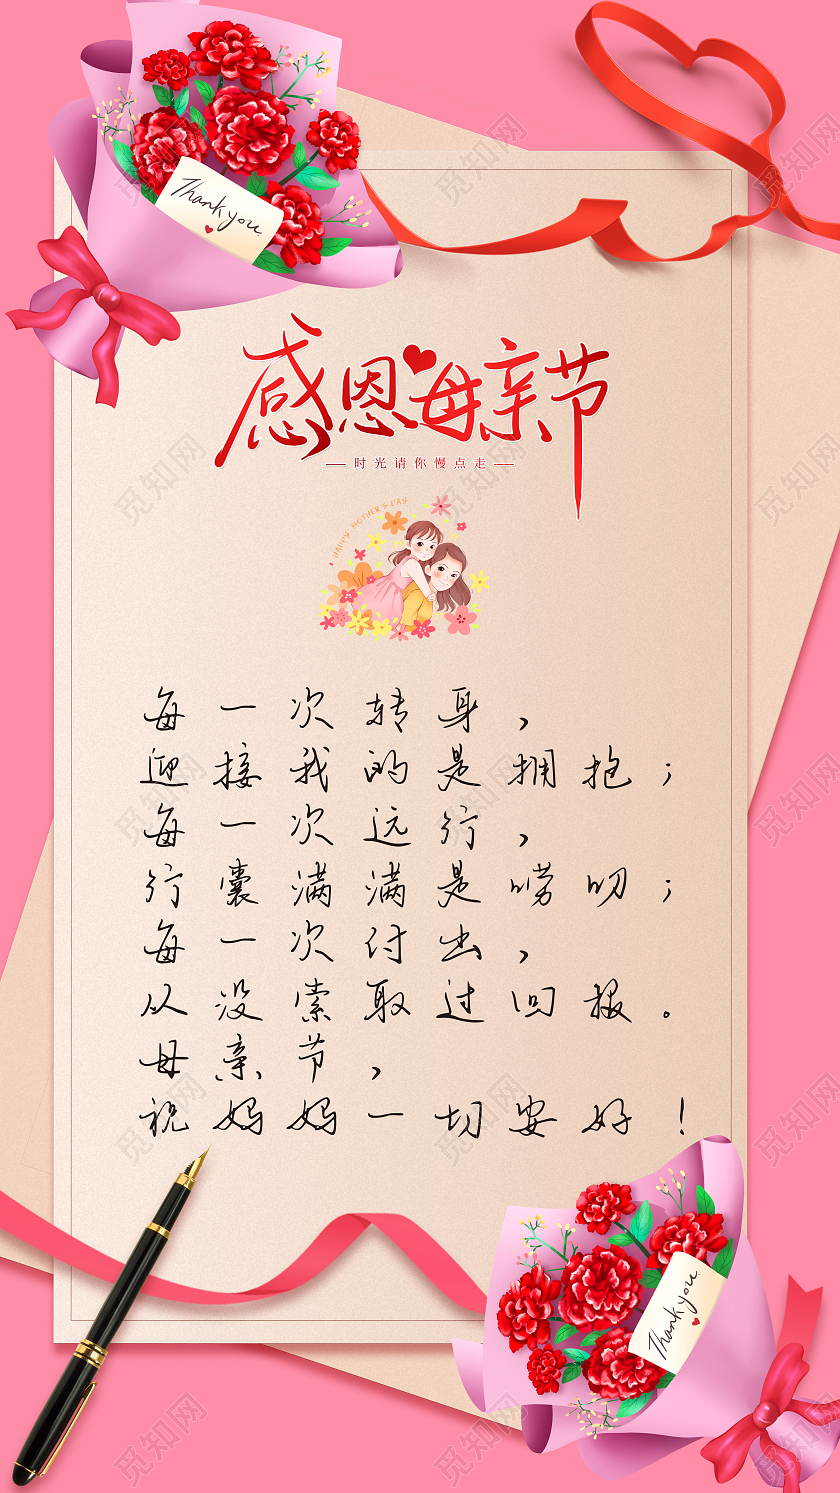 Thank you
感恩母亲节
时光请你慢点走
HAPPY MOTHER'S DAY
每一次转身，
迎接我的是拥抱；
每一次远行，
行囊满满是唠叨；
每一次付出，
从没索取过回报。
母亲节，
祝妈妈一切安好！
Thank you
觅知网